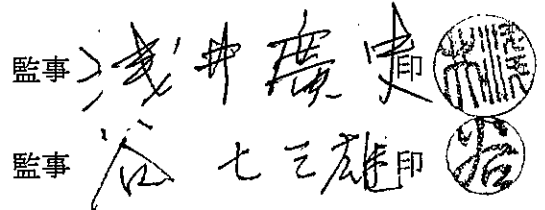 監事 浅井廣史 印
監事 谷七三雄 印